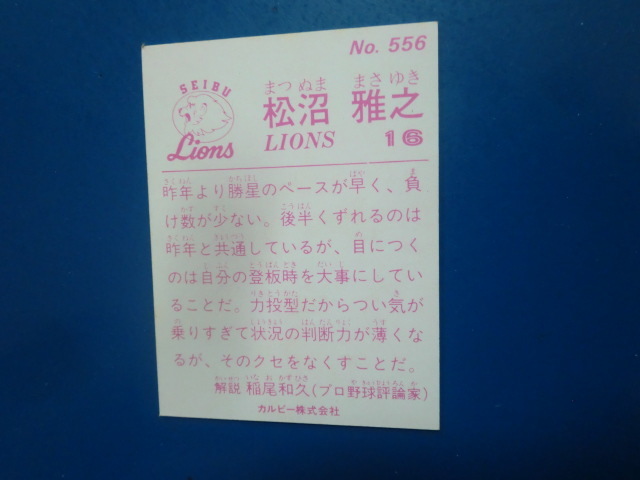 No. 556
SEIBU
Lions
まつ ぬま まさ ゆき
松沼 雅之
LIONS 16
昨年より勝星のペースが早く、負
け数が少ない。後半くずれるのは
昨年と共通しているが、目につく
のは自分の登板時を大事にしてい
ることだ。力投型だからつい気が
乗りすぎて状況の判断力が薄くな
るが、そのクセをなくすことだ。
解説 稲尾和久(プロ野球評論家)
カルビー株式会社